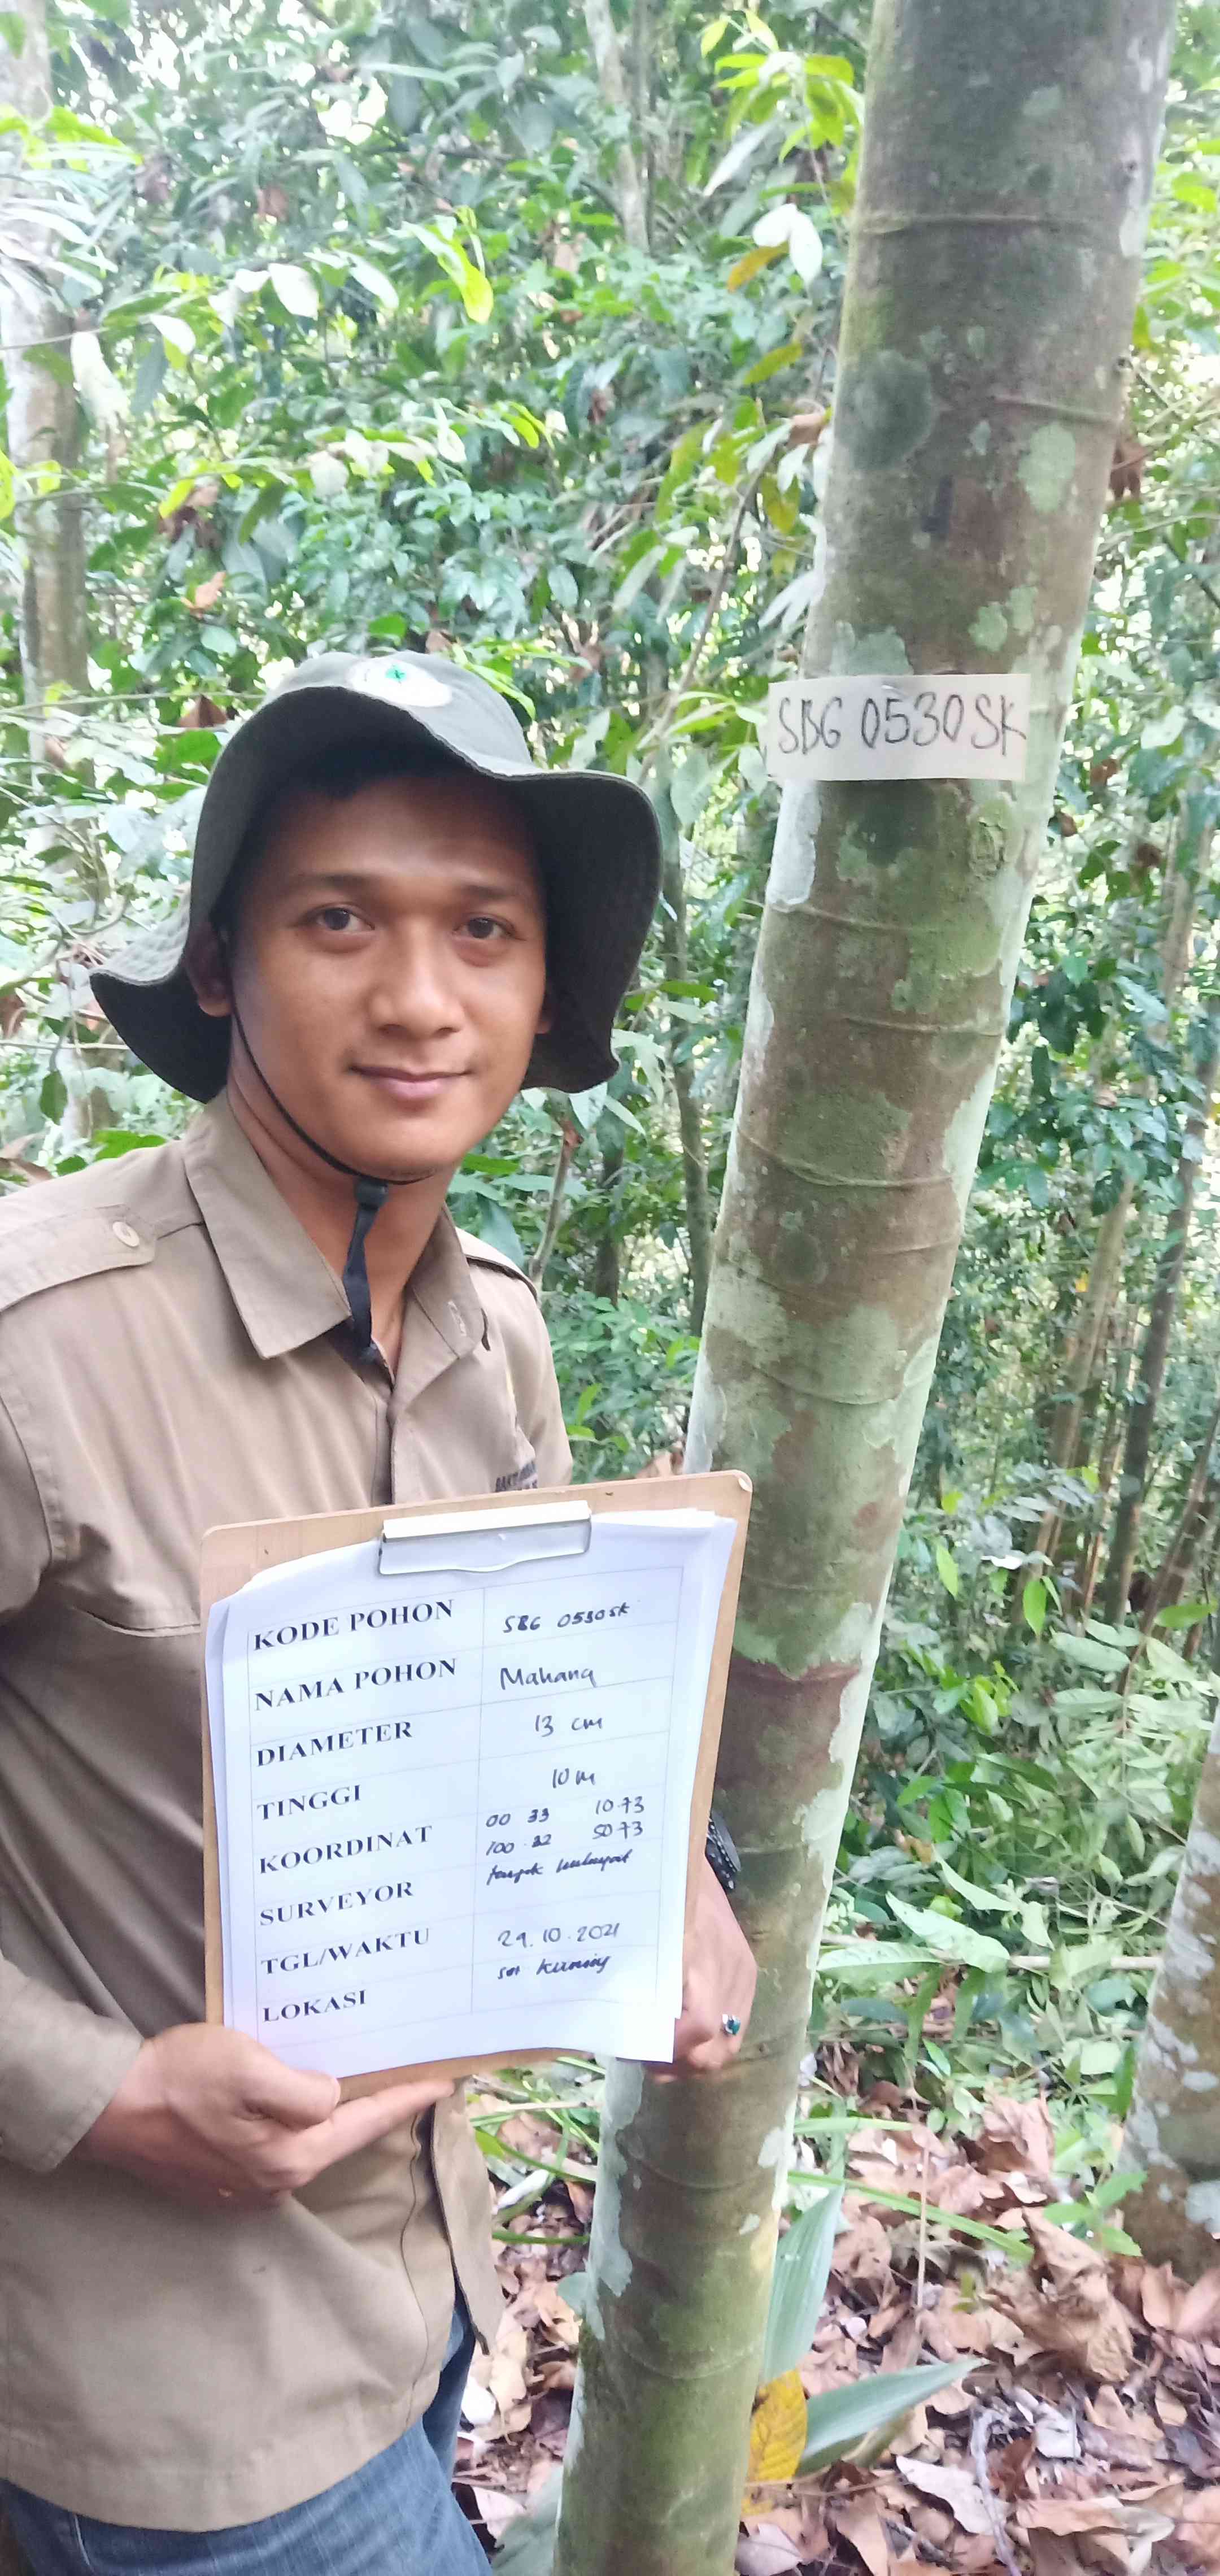 SBG 0530SK
KODE POHON SBG 0530SK
NAMA POHON Mahang
DIAMETER 13 cm
TINGGI 10 m
KOORDINAT 00 33 10.73
100. 50 73
SURVEYOR
TGL/WAKTU 29.10.2021
LOKASI Kuning